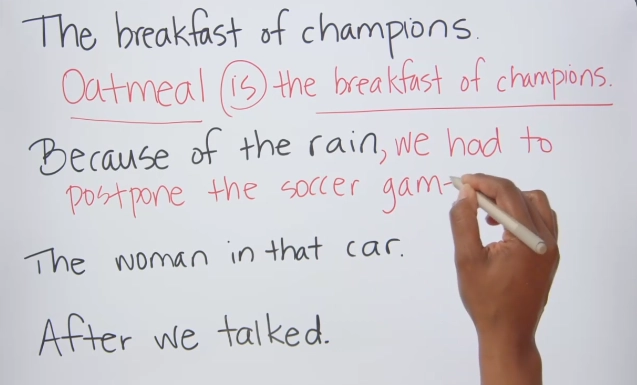 The breakfast of champions.
Oatmeal is the breakfast of champions.
Because of the rain, we had to
postpone the soccer gam
The woman in that car.
After we talked.